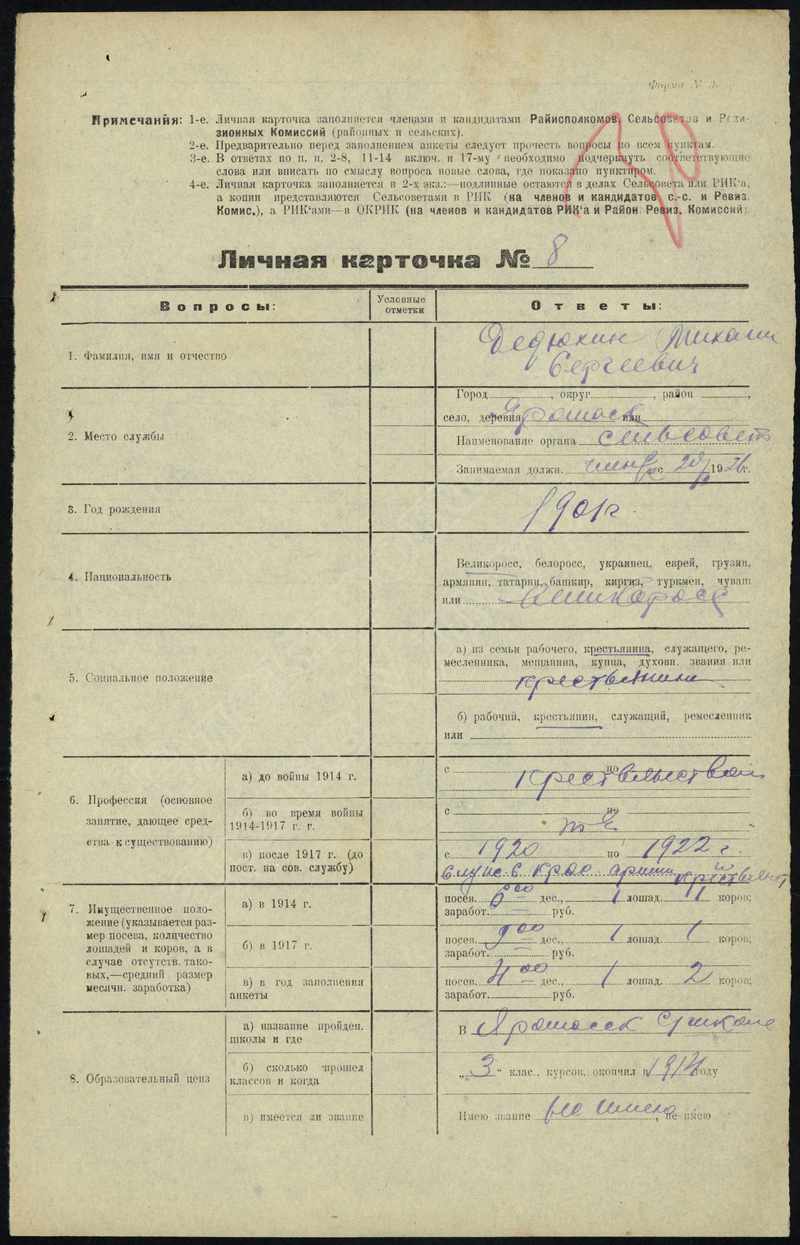 Форма №
Примечания: 1-е. Личная карточка заполняется членами и кандидатами Райисполкомов, Сельсоветов и Реви-
зионных Комиссий (районных и сельских).
2-е. Предварительно перед заполнением анкеты следует прочесть вопросы по всем пунктам.
3-е. В ответах по п. п. 2-8, 11-14 включ. и 17-му необходимо подчеркнуть соответствующие
слова или вписать по смыслу вопроса новые слова, где показано пунктиром.
4-е. Личная карточка заполняется в 2-х экз.:—подлинные остаются в делах Сельсовета или РИК'а,
а копии представляются Сельсоветами в РИК (на членов и кандидатов с.-с. и Ревиз.
Комис.), а РИК'ами—в ОКРИК (на членов и кандидатов РИК'а и Район. Ревиз. Комиссий)
Личная карточка № 8
Вопросы:
Условные
отметки
Ответы:
1. Фамилия, имя и отчество
Дедюхин Михаил
Сергеевич
2. Место службы
Город , округ , район ,
село, деревня или
Наименование органа сельсовет
Занимаемая должн. член с 20 1926г.
3. Год рождения
1901г.
4. Национальность
Великоросс, белоросс, украинец, еврей, грузин,
армянин, татарин, башкир, киргиз, туркмен, чуваш
или великоросс
5. Социальное положение
а) из семьи рабочего, крестьянина, служащего, ре-
месленника, мещанина, купца, духовн. звания или
б) рабочий, крестьянин, служащий, ремесленник
или
6. Профессия (основное
занятие, дающее сред-
ства к существованию)
а) до войны 1914 г.
с по
б) во время войны
1914-1917 г. г.
с по
в) после 1917 г. (до
пост. на сов. службу)
с 1920 по 1922 г.
7. Имущественное поло-
жение (указывается раз-
мер посева, количество
лошадей и коров, а в
случае отсутств. тако-
вых,—средний размер
месячн. заработка)
а) в 1914 г.
посев. 6 00 дес., 1 лошад. 1 коров;
заработ. — руб.
б) в 1917 г.
посев. 9 00 дес., 1 лошад. 1 коров;
заработ. — руб.
в) в год заполнения
анкеты
посев. 4 00 дес., 1 лошад. 2 коров;
заработ. руб.
8. Образовательный ценз
а) название пройден.
школы и где
В
б) сколько прошел
классов и когда
„ 3 “ клас., курсов, окончил в 1914 году
в) имеется ли звание
Имею звание не имею, не имею